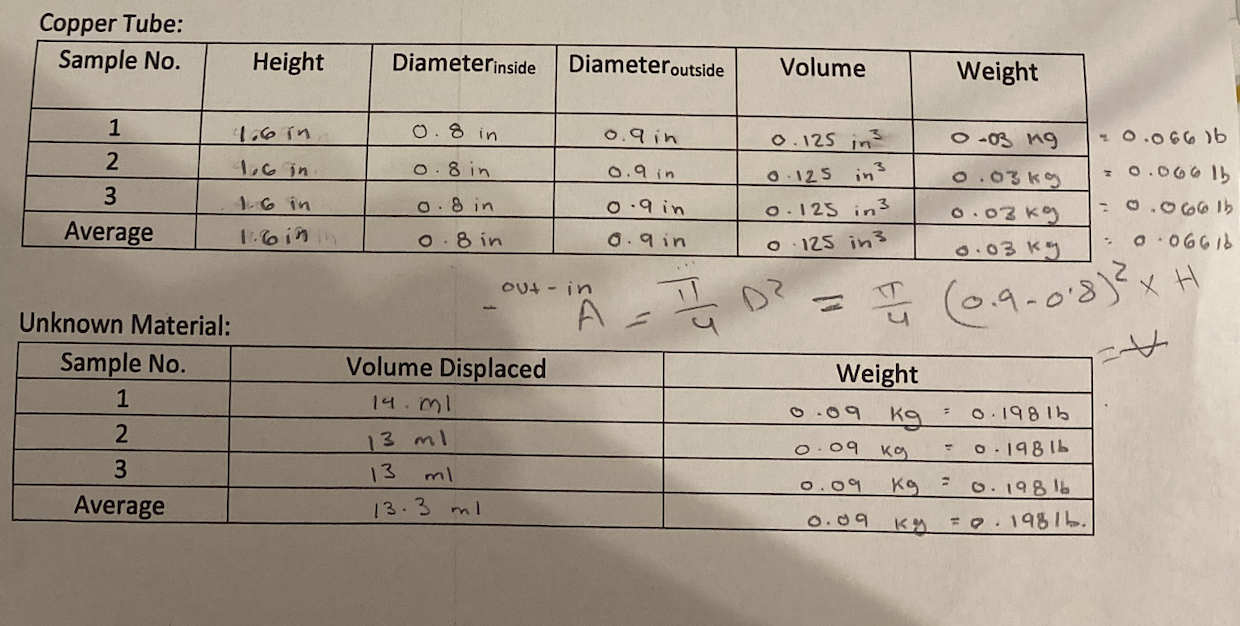 Copper Tube:
Sample No. Height Diameterinside Diameteroutside Volume Weight
1 1.6 in 0.8 in 0.9 in 0.125 in³ 0.03 kg = 0.066 lb
2 1.6 in 0.8 in 0.9 in 0.125 in³ 0.03 kg = 0.066 lb
3 1.6 in 0.8 in 0.9 in 0.125 in³ 0.03 kg = 0.066 lb
Average 1.6 in 0.8 in 0.9 in 0.125 in³ 0.03 kg = 0.066 lb
out - in
A = π/4 D² = π/4 (0.9-0.8)² x H
= V
Unknown Material:
Sample No. Volume Displaced Weight
1 14. ml 0.09 kg = 0.198 lb
2 13 ml 0.09 kg = 0.198 lb
3 13 ml 0.09 kg = 0.198 lb
Average 13.3 ml 0.09 kg = 0.198 lb.